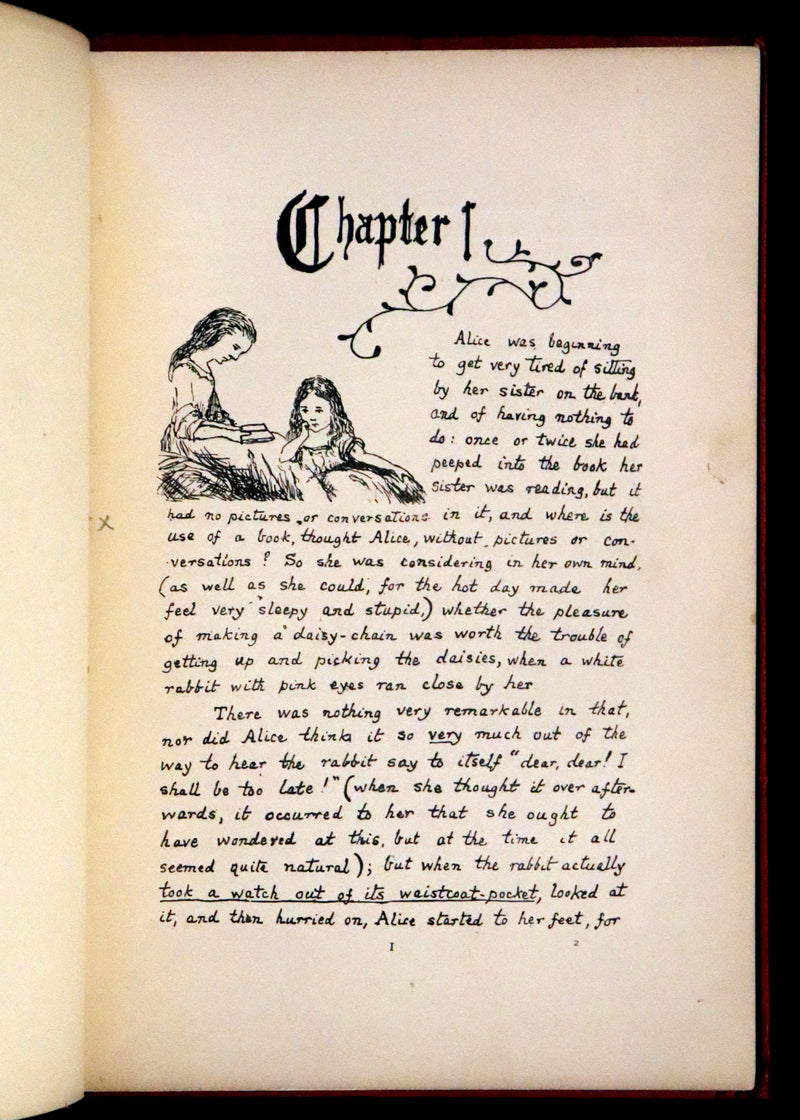 Chapter I
Alice was beginning
to get very tired of sitting
by her sister on the bank,
and of having nothing to
do: once or twice she had
peeped into the book her
sister was reading, but it
had no pictures or conversations in it, and where is the
use of a book, thought Alice, without pictures or con-
-versations? So she was considering in her own mind,
(as well as she could, for the hot day made her
feel very sleepy and stupid,) whether the pleasure
of making a daisy-chain was worth the trouble of
getting up and picking the daisies, when a white
rabbit with pink eyes ran close by her
There was nothing very remarkable in that,
nor did Alice think it so very much out of the
way to hear the rabbit say to itself "dear, dear! I
shall be too late!" (when she thought it over after-
wards, it occurred to her that she ought to
have wondered at this, but at the time it all
seemed quite natural); but when the rabbit actually
took a watch out of its waistcoat-pocket, looked at
it, and then hurried on, Alice started to her feet, for
1 2
x